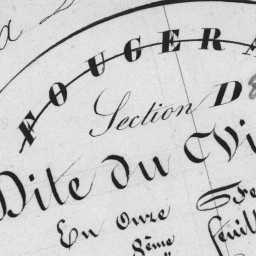 FOUGERA
Section D
Dite du Vi
En onze
Feuill
8ème